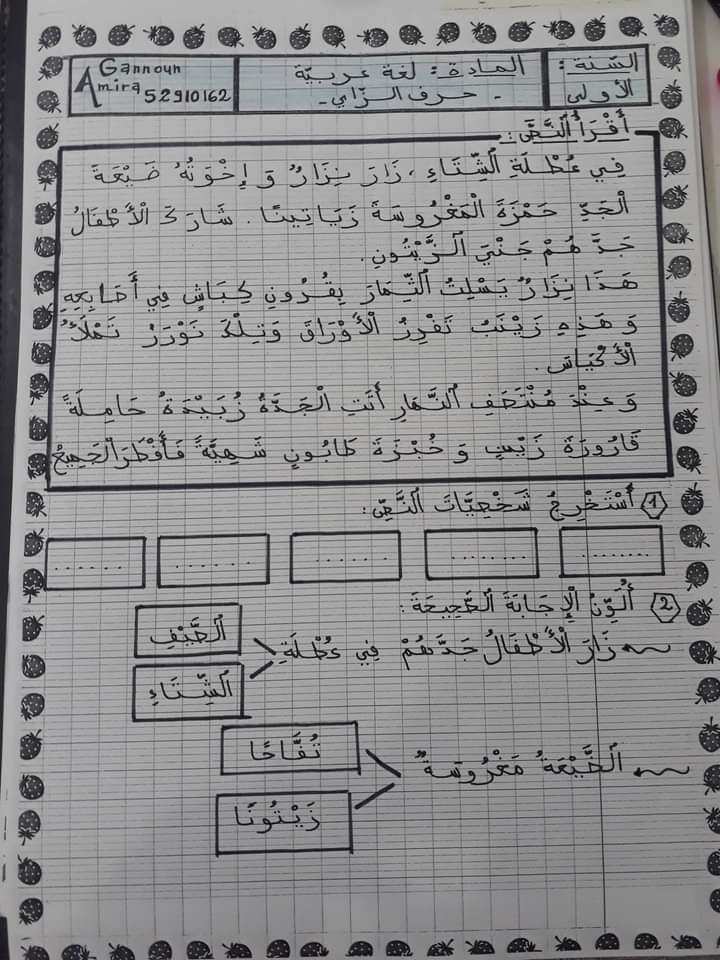 السّنة :
الأولى
المادة : لغة عربيّة
- حرف الزّاي -
Gannoun
Amira 52910162
أَقْرَأُ النَّصَّ :
فِي عُطْلَةِ الشِّتَاءِ ، زَارَ نِزَارٌ وَ إِخْوَتُهُ ضَيْعَةَ
الْجَدِّ حَمْزَةَ الْمَغْرُوسَةَ زَيَاتِينًا . شَارَكَ الْأَطْفَالُ
جَدَّهُمْ جَنْيَ الزَّيْتُونِ .
هَذَا نِزَارٌ يَسْلِتُ الثِّمَارَ بِقُرُونِ كِبَاشٍ فِي أَصَابِعِهِ
وَ هَذِهِ زَيْنَبُ تَفْرِزُ الْأَوْرَاقَ وَتِلْكَ نَوْرَزُ تَمْلَأُ
الْأَكْيَاسَ .
وَ عِنْدَ مُنْتَصَفِ النَّهَارِ أَتَتِ الْجَدَّةُ زُبَيْدَةُ حَامِلَةً
قَارُورَةَ زَيْتٍ وَ خُبْزَةَ طَابُونٍ شَهِيَّةً فَأَفْطَرَ الْجَمِيعُ
1 أَسْتَخْرِجُ شَخْصِيَّاتَ النَّصِّ :
......... ........ ....... ...... ......
2 أُلَوِّنُ الْإِجَابَةَ الصَّحِيحَةَ :
زَارَ الْأَطْفَالُ جَدَّهُمْ فِي عُطْلَةِ
الصَّيْفِ
الشِّتَاءِ
الضَّيْعَةُ مَغْرُوسَةٌ
تُفَّاحًا
زَيْتُونًا